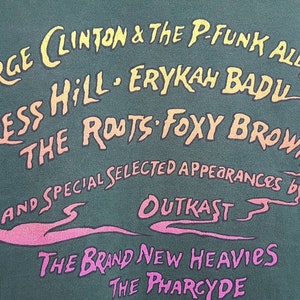 RGE CLINTON & THE P-FUNK ALL
ESS HILL · ERYKAH BADU
THE ROOTS · FOXY BROW
AND SPECIAL SELECTED APPEARANCES B
OUTKAST
THE BRAND NEW HEAVIES
THE PHARCYDE